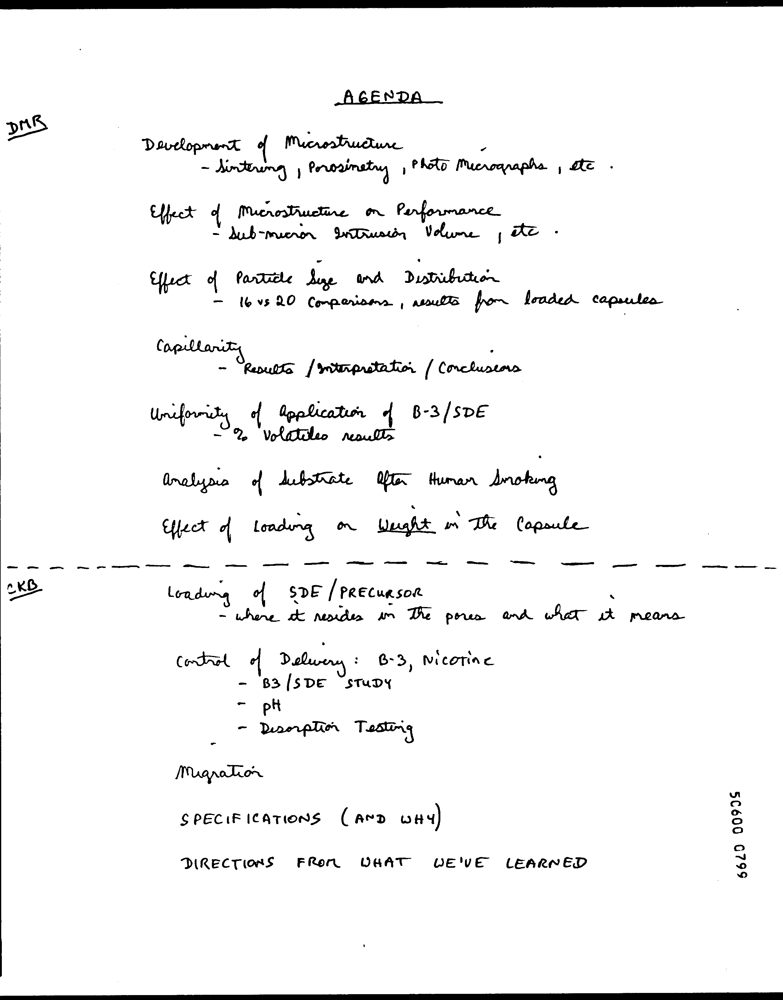 AGENDA
DMR
Development of Microstructure
- Sintering, Porosimetry, Photo Micrographs, etc.
Effect of Microstructure on Performance
- Sub-micron Intrusion Volume, etc.
Effect of Particle Size and Distribution
- 16 vs 20 Comparisons, results from loaded capsules
Capillarity
- Results / Interpretation / Conclusions
Uniformity of Application of B-3/SDE
- % Volatiles results
Analysis of Substrate After Human Smoking
Effect of Loading on Weight in the Capsule
CKB
Loading of SDE/PRECURSOR
- where it resides in the pores and what it means
Control of Delivery: B-3, Nicotine
- B3/SDE STUDY
- pH
- Desorption Testing
Migration
SPECIFICATIONS (AND WHY)
DIRECTIONS FROM WHAT WE'VE LEARNED
50600 0799